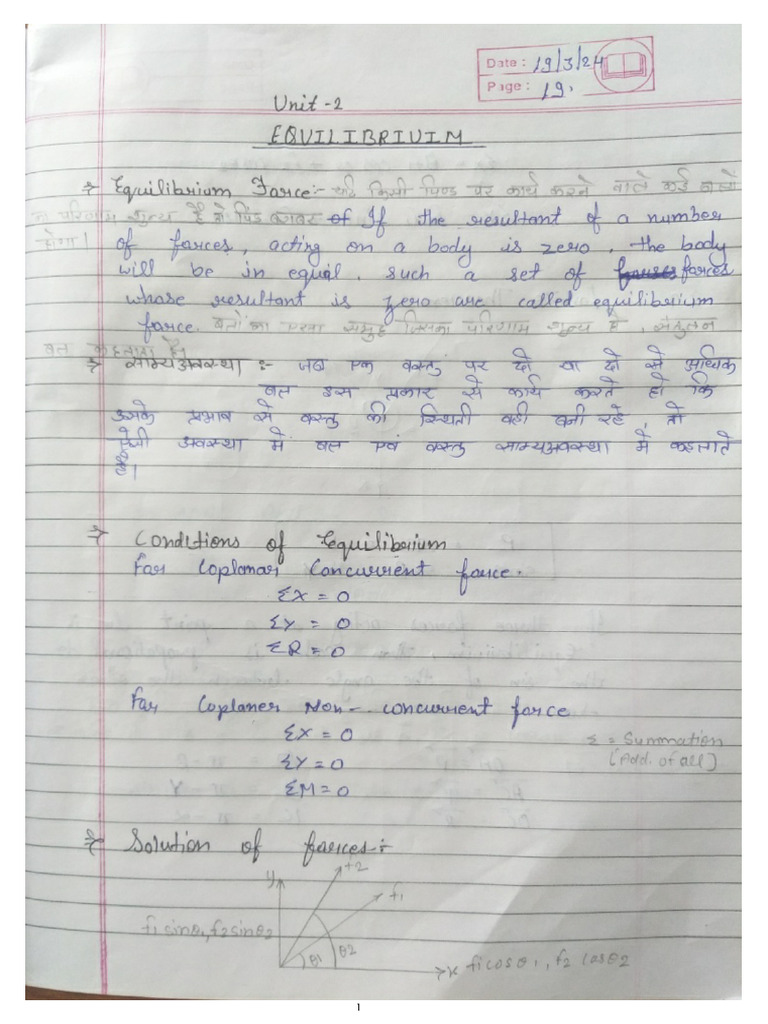 Date : 19/3/24
Page : 19.
Unit-2
EQUILIBRIUIM
→ Equilibrium Farce:- यदि किसी पिण्ड पर कार्य करने वाले कई बलो
का परिणाम शून्य है तो पिंड बराबर of If the resultant of a number
होगा। of farces, acting on a body is zero, the body
will be in equal, such a set of farces
whose resultant is zero are called equilibrium
farce. बलों का एसा समुह जिसका परिणाम शून्य है, संतुलन
बल कहलाता है।
→ साम्यअवस्था :- जब एक वस्तु पर दो या दो से अधिक
बल इस प्रकार से कार्य करते हो कि
उसके प्रभाव से वस्तु की स्थिती वही बनी रहे, तो
ऐसी अवस्था मे बल एवं वस्तु साम्यअवस्था मे कहलाते
है।
→ Conditions of Equilibrium
Far Coplanar Concurrent farce.
ΣX = 0
ΣY = 0
ΣR = 0
Far Coplaner Non- concurrent farce
ΣX = 0
ΣY = 0
ΣM = 0
Σ = Summation
(Add. of all)
→ Solution of farces:-
y
f2
f1
f1 sinθ1, f2 sinθ2
θ1
θ2
x f1 cosθ1, f2 cosθ2
1